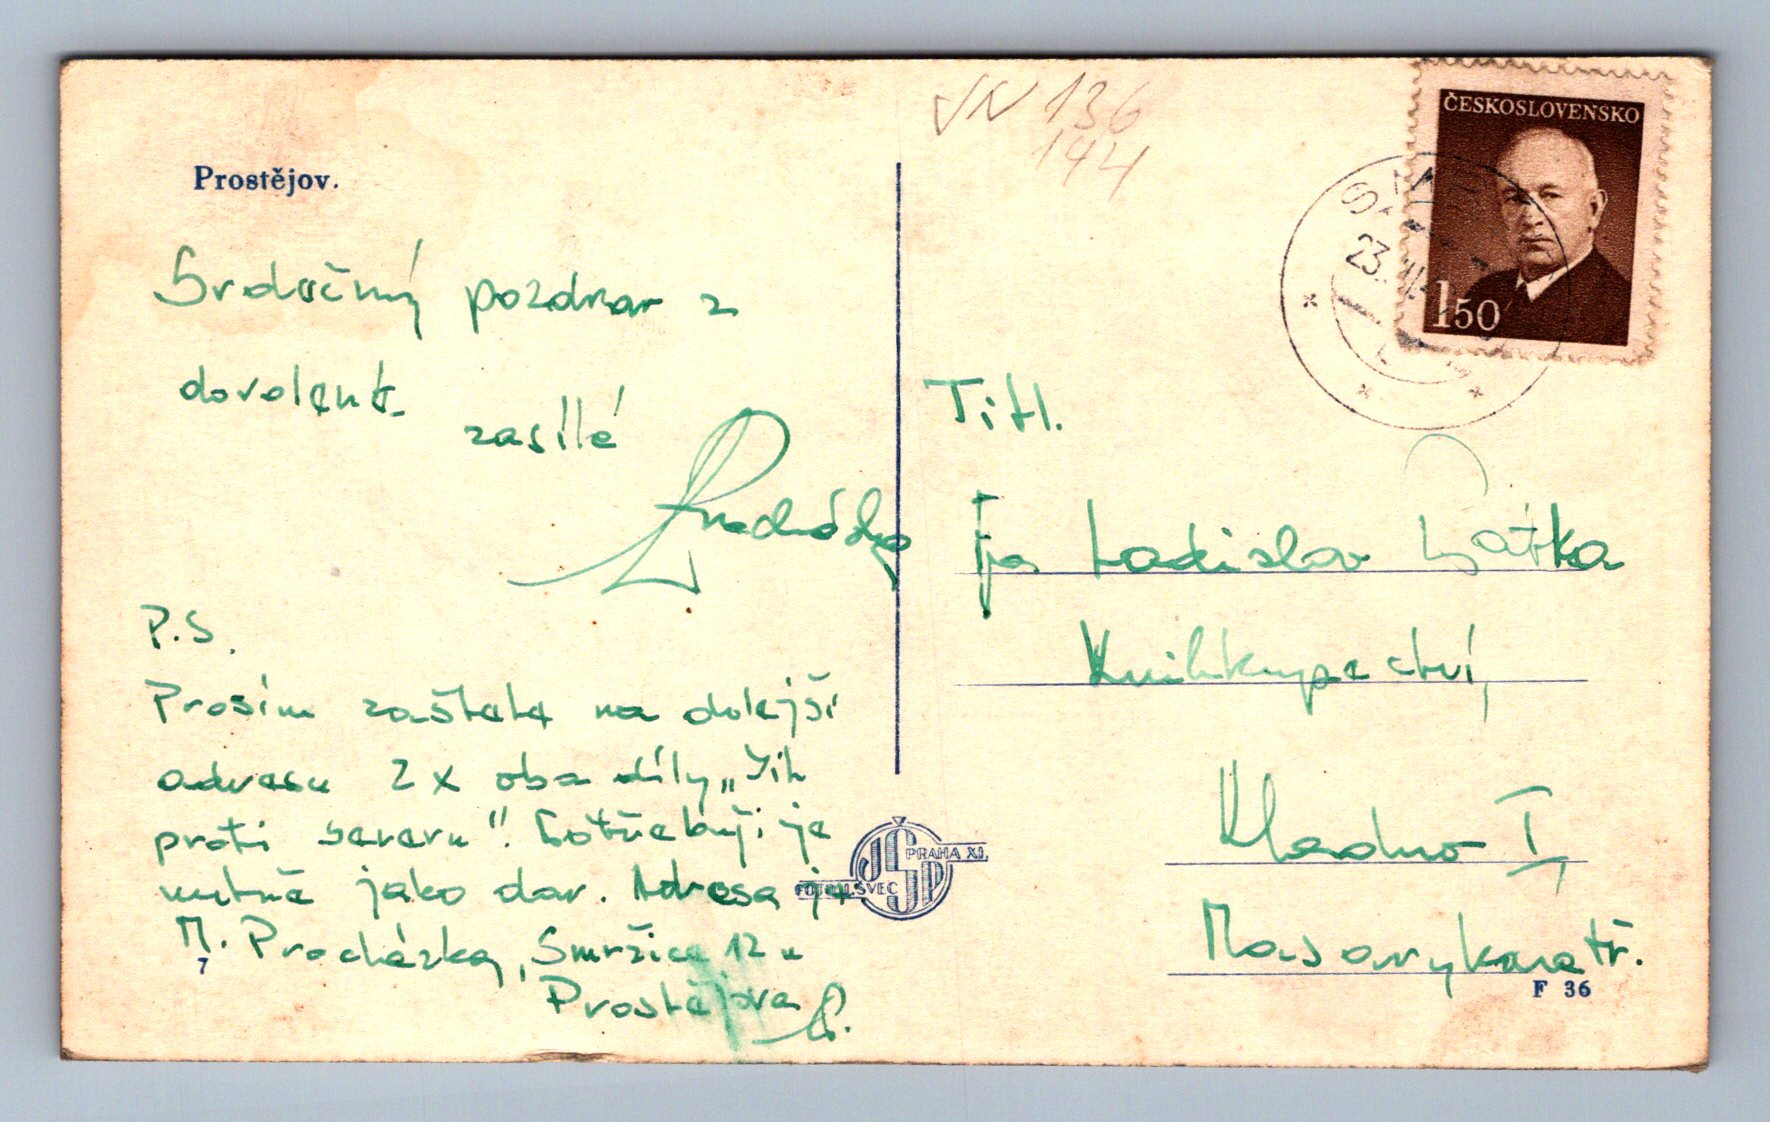 Prostějov.
Srdečný pozdrav z
dovolené
zasílá
P.S.
Prosím zašlete na dolejší
adresu 2 x oba díly „Jih
proti severu". Potřebuji je
nutně jako dar. Adresa je:
M. Procházka, Smržice 12 u
Prostějova
P.
7
FOTO J. ŠVEC
PRAHA XI.
JŠP
VN 136
144
ČESKOSLOVENSKO
1.50
23.
Titl.
Fa Ladislav Baťka
Knihkupectví,
Kladno I
Masarykova tř.
F 36